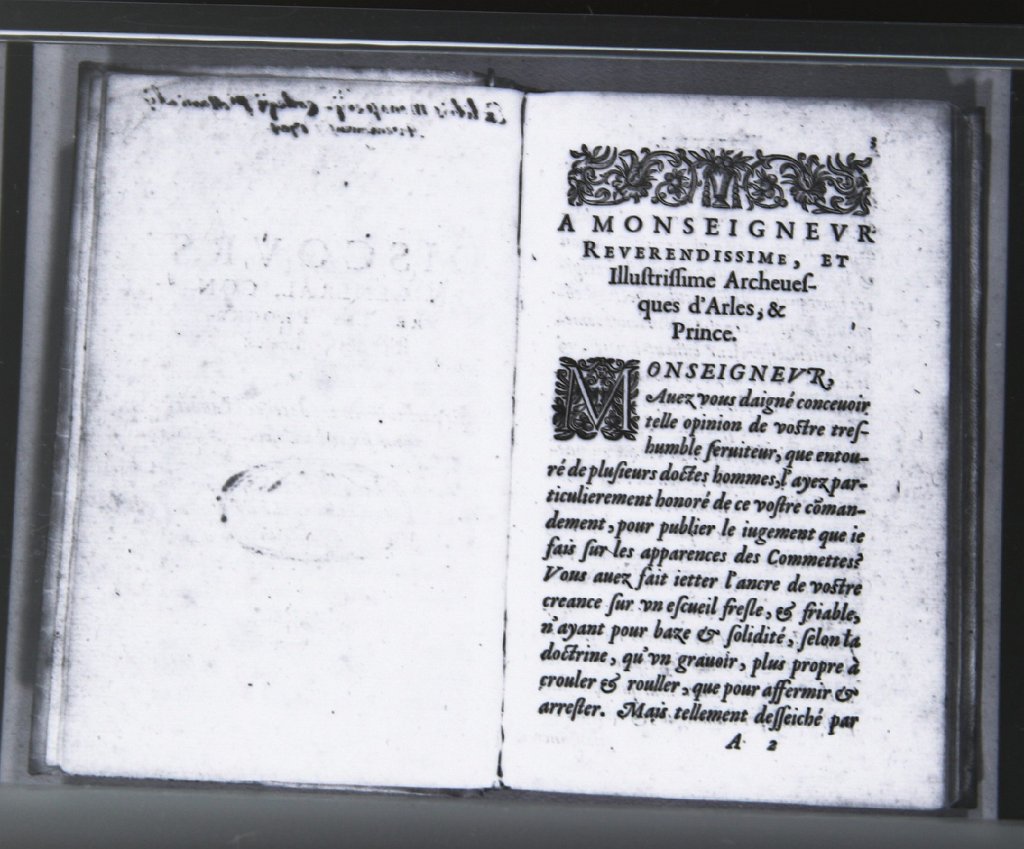 DISCOVRS
3
A MONSEIGNEVR
REVERENDISSIME, ET
Illuſtriſſime Archeueſ-
ques d'Arles, &
Prince.
MONSEIGNEVR,
Auez vous daigné conceuoir
telle opinion de voſtre treſ-
humble ſeruiteur, que entou-
ré de pluſieurs doctes hommes, l'ayez par-
ticulierement honoré de ce voſtre cõman-
dement, pour publier le iugement que ie
fais ſur les apparences des Commettes?
Vous auez fait ietter l'ancre de voſtre
creance ſur vn eſcueil freſle, & friable,
n'ayant pour baze & ſolidité, ſelon ta
doctrine, qu'vn grauoir, plus propre à
crouler & rouller, que pour affermir &
arreſter. Mais tellement deſſeiché par
A 2